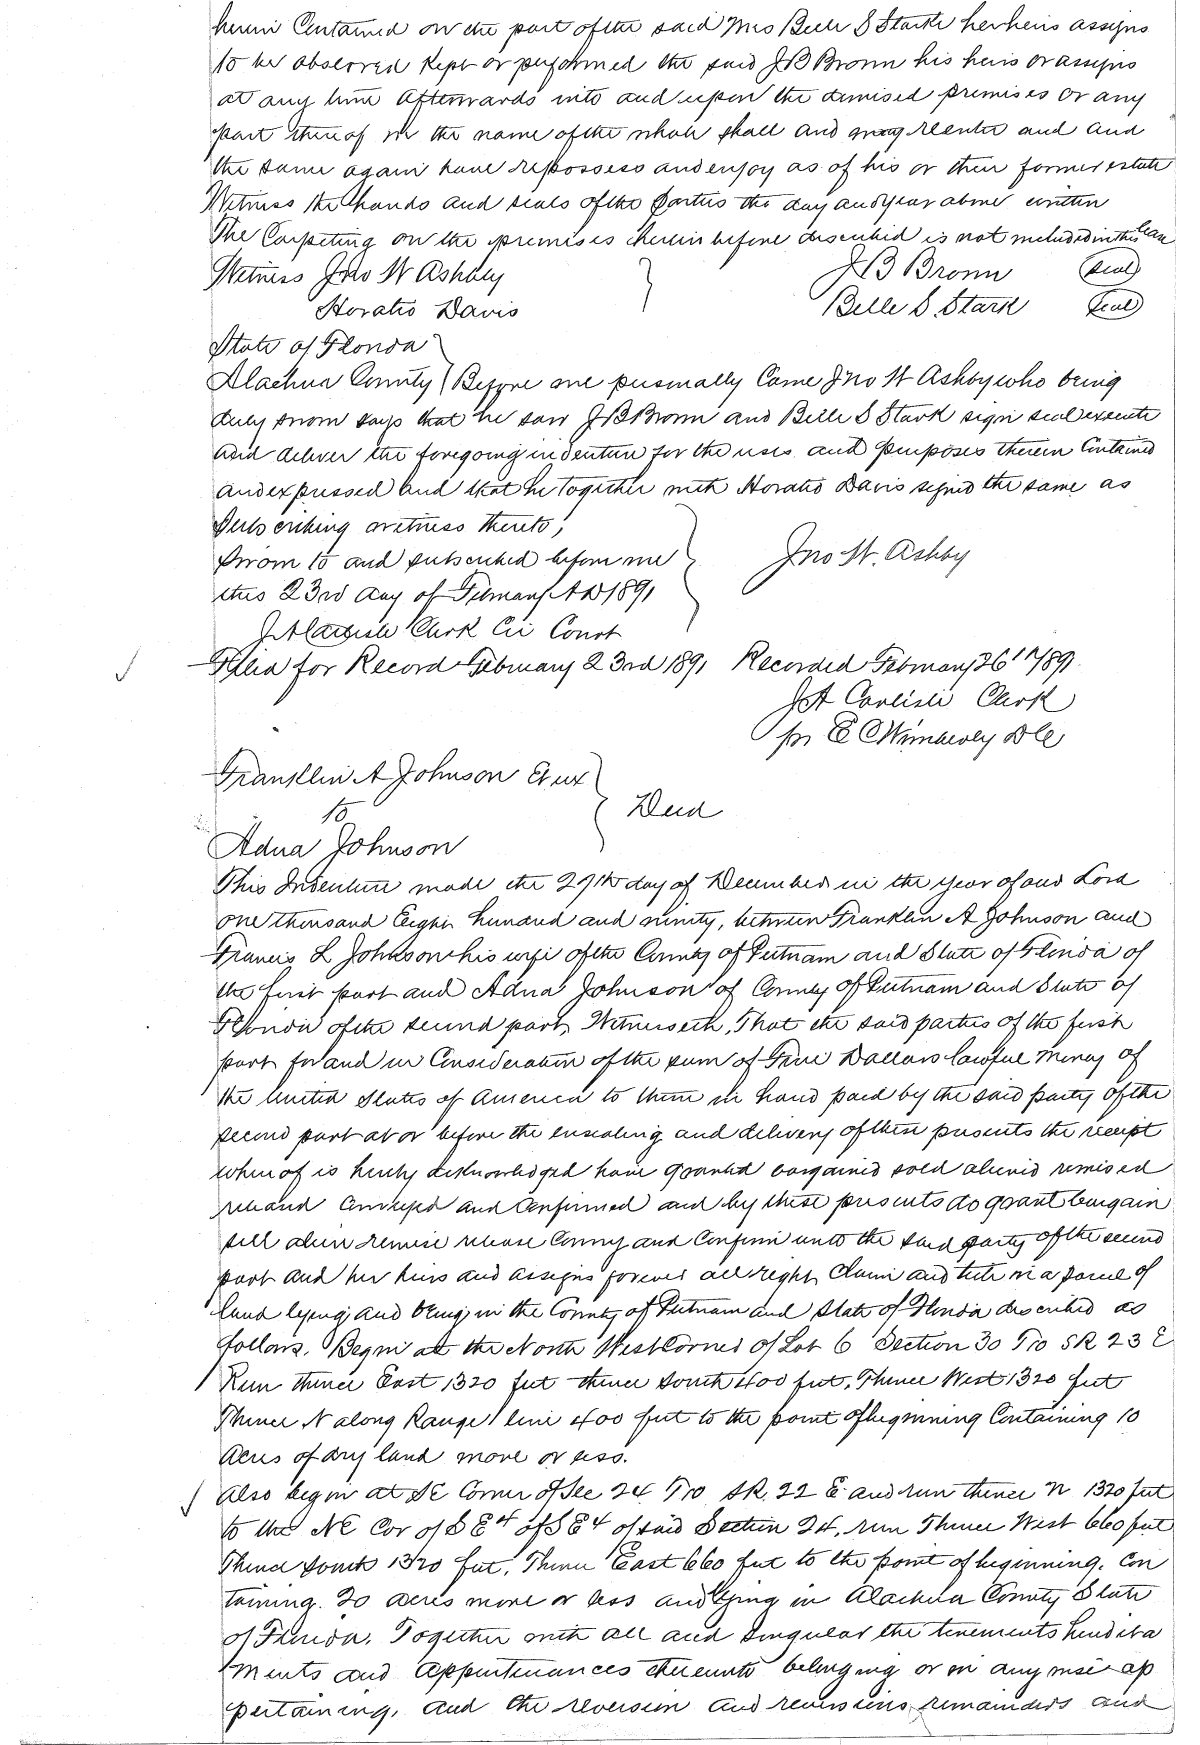 herein Contained on the part of the said Mrs Belle S Stark her heirs assigns
to be observed kept or performed the said J B Bronn his heirs or assigns
at any time afterwards into and upon the demised premises or any
part thereof in the name of the whole shall and may reenter and and
the same again have repossess and enjoy as of his or their former estate
Witness the hands and seals of the parties the day and year above written
The Carpeting on the premises herein before described is not included in this lease
Witness Jno W Ashby J B Bronn (seal)
Horatio Davis Belle S. Stark (seal)
State of Florida
Alachua County Before me personally Came Jno W Ashby who being
duly sworn says that he saw J B Bronn and Belle S Stark sign seal execute
and deliver the foregoing indenture for the uses and purposes therein Contained
and expressed and that he together with Horatio Davis signed the same as
Subscribing witness thereto,
Sworn to and subscribed before me Jno W. Ashby
this 23rd day of February A D 1891
J A Carlisle Clerk Cir Court
Filed for Record February 23rd 1891 Recorded February 26th 1891
J A Carlisle Clerk
pr E C Wimberly D C
Franklin A Johnson Et ux
to Deed
Adna Johnson
This Indenture made the 29th day of December in the year of our Lord
one thousand Eight hundred and ninety, between Franklin A Johnson and
Francis L Johnson his wife of the County of Putnam and State of Florida of
the first part and Adna Johnson of County of Putnam and State of
Florida of the second part, Witnesseth, That the said parties of the first
part for and in Consideration of the sum of Five Dollars lawful money of
the United States of America to them in hand paid by the said party of the
second part at or before the ensealing and delivery of these presents the receipt
whereof is hereby acknowledged have granted bargained sold aliened remised
released Conveyed and Confirmed and by these presents do grant bargain
sell alien remise release Convey and Confirm unto the said party of the second
part and her heirs and assigns forever all right, Claim and title in a parcel of
land lying and being in the County of Putnam and State of Florida described as
follows. Begin at the North West Corner of Lot 6 Section 30 T10 S R 23 E
Run thence East 1320 feet thence South 400 feet, Thence West 1320 feet
Thence N along Range line 400 feet to the point of beginning Containing 10
Acres of dry land more or less.
Also begin at SE Corner of Sec 24 T10 S R. 22 E and run thence N 1320 feet
to the NE Cor of S E 4 of S E 4 of said Section 24, run Thence West 660 feet
Thence South 1320 feet, Thence East 660 feet to the point of beginning. Con
taining 20 acres more or less and lying in Alachua County State
of Florida, Together with all and singular the tenements heredita
ments and appurtenances thereunto belonging or in any wise ap
pertaining, and the reversion and reversions remainders and